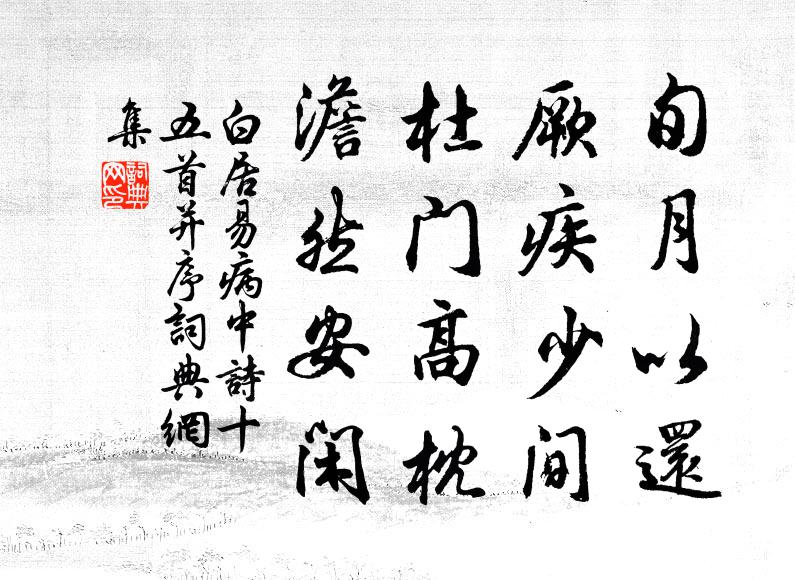 旬月以還
厥疾少间
杜门高枕
澹然安闲
白居易病中詩十
五首并序詞典網
集
詞典
网印